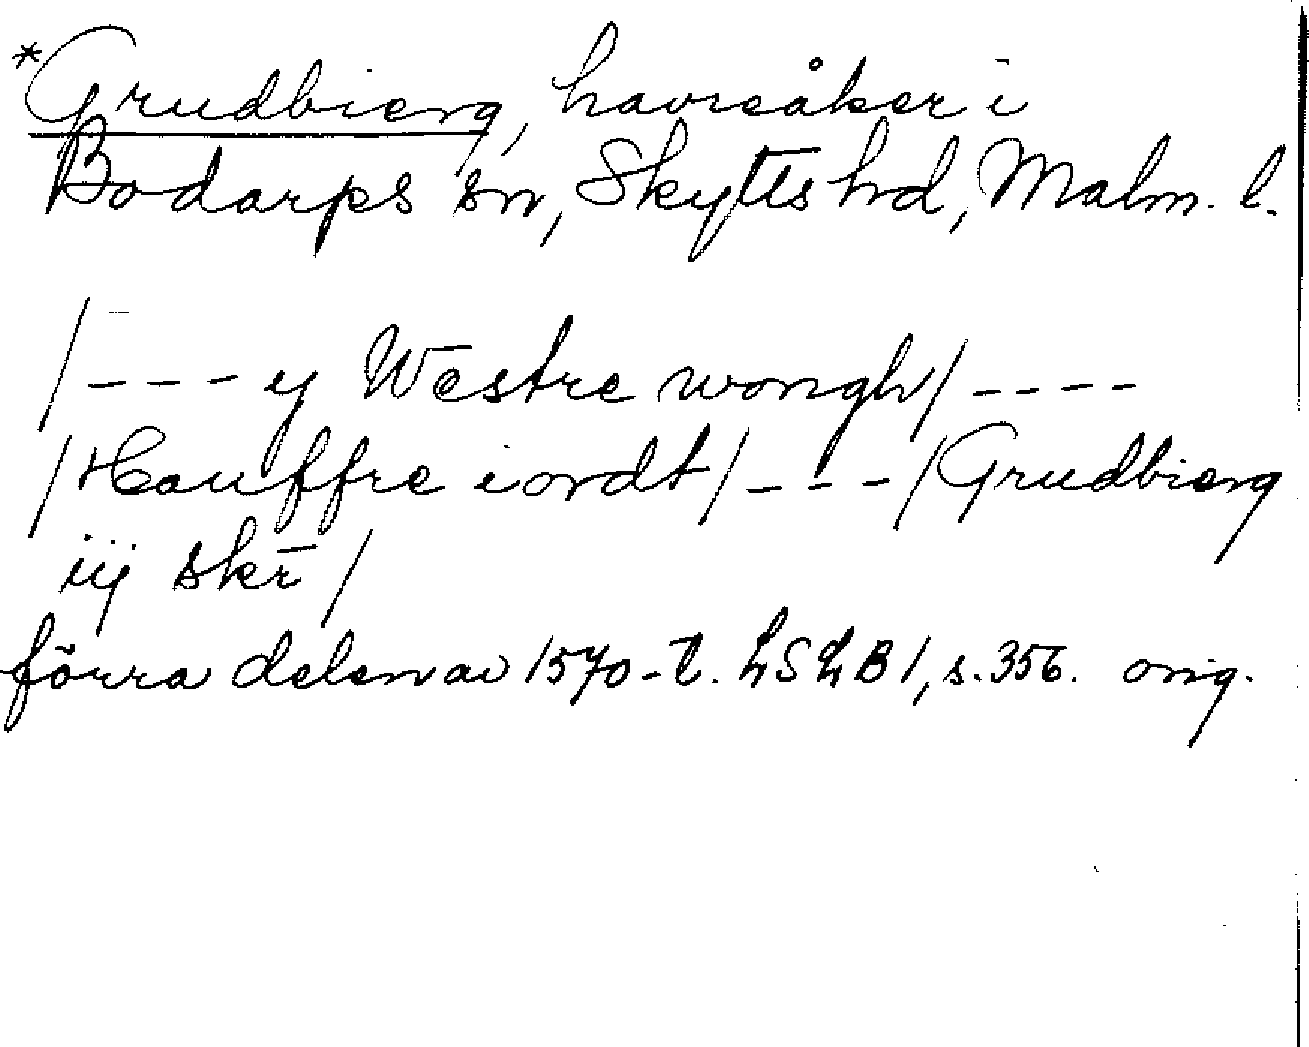 *Grudbierg, havreåker i
Bodarps sn, Skytts hd, Malm. l.
/---- y Westre wongh/----
/Hauffre iordt/---/Grudbierg
iij skr̄/
förra delen av 1570-t. LSLB 1, s. 356. orig.